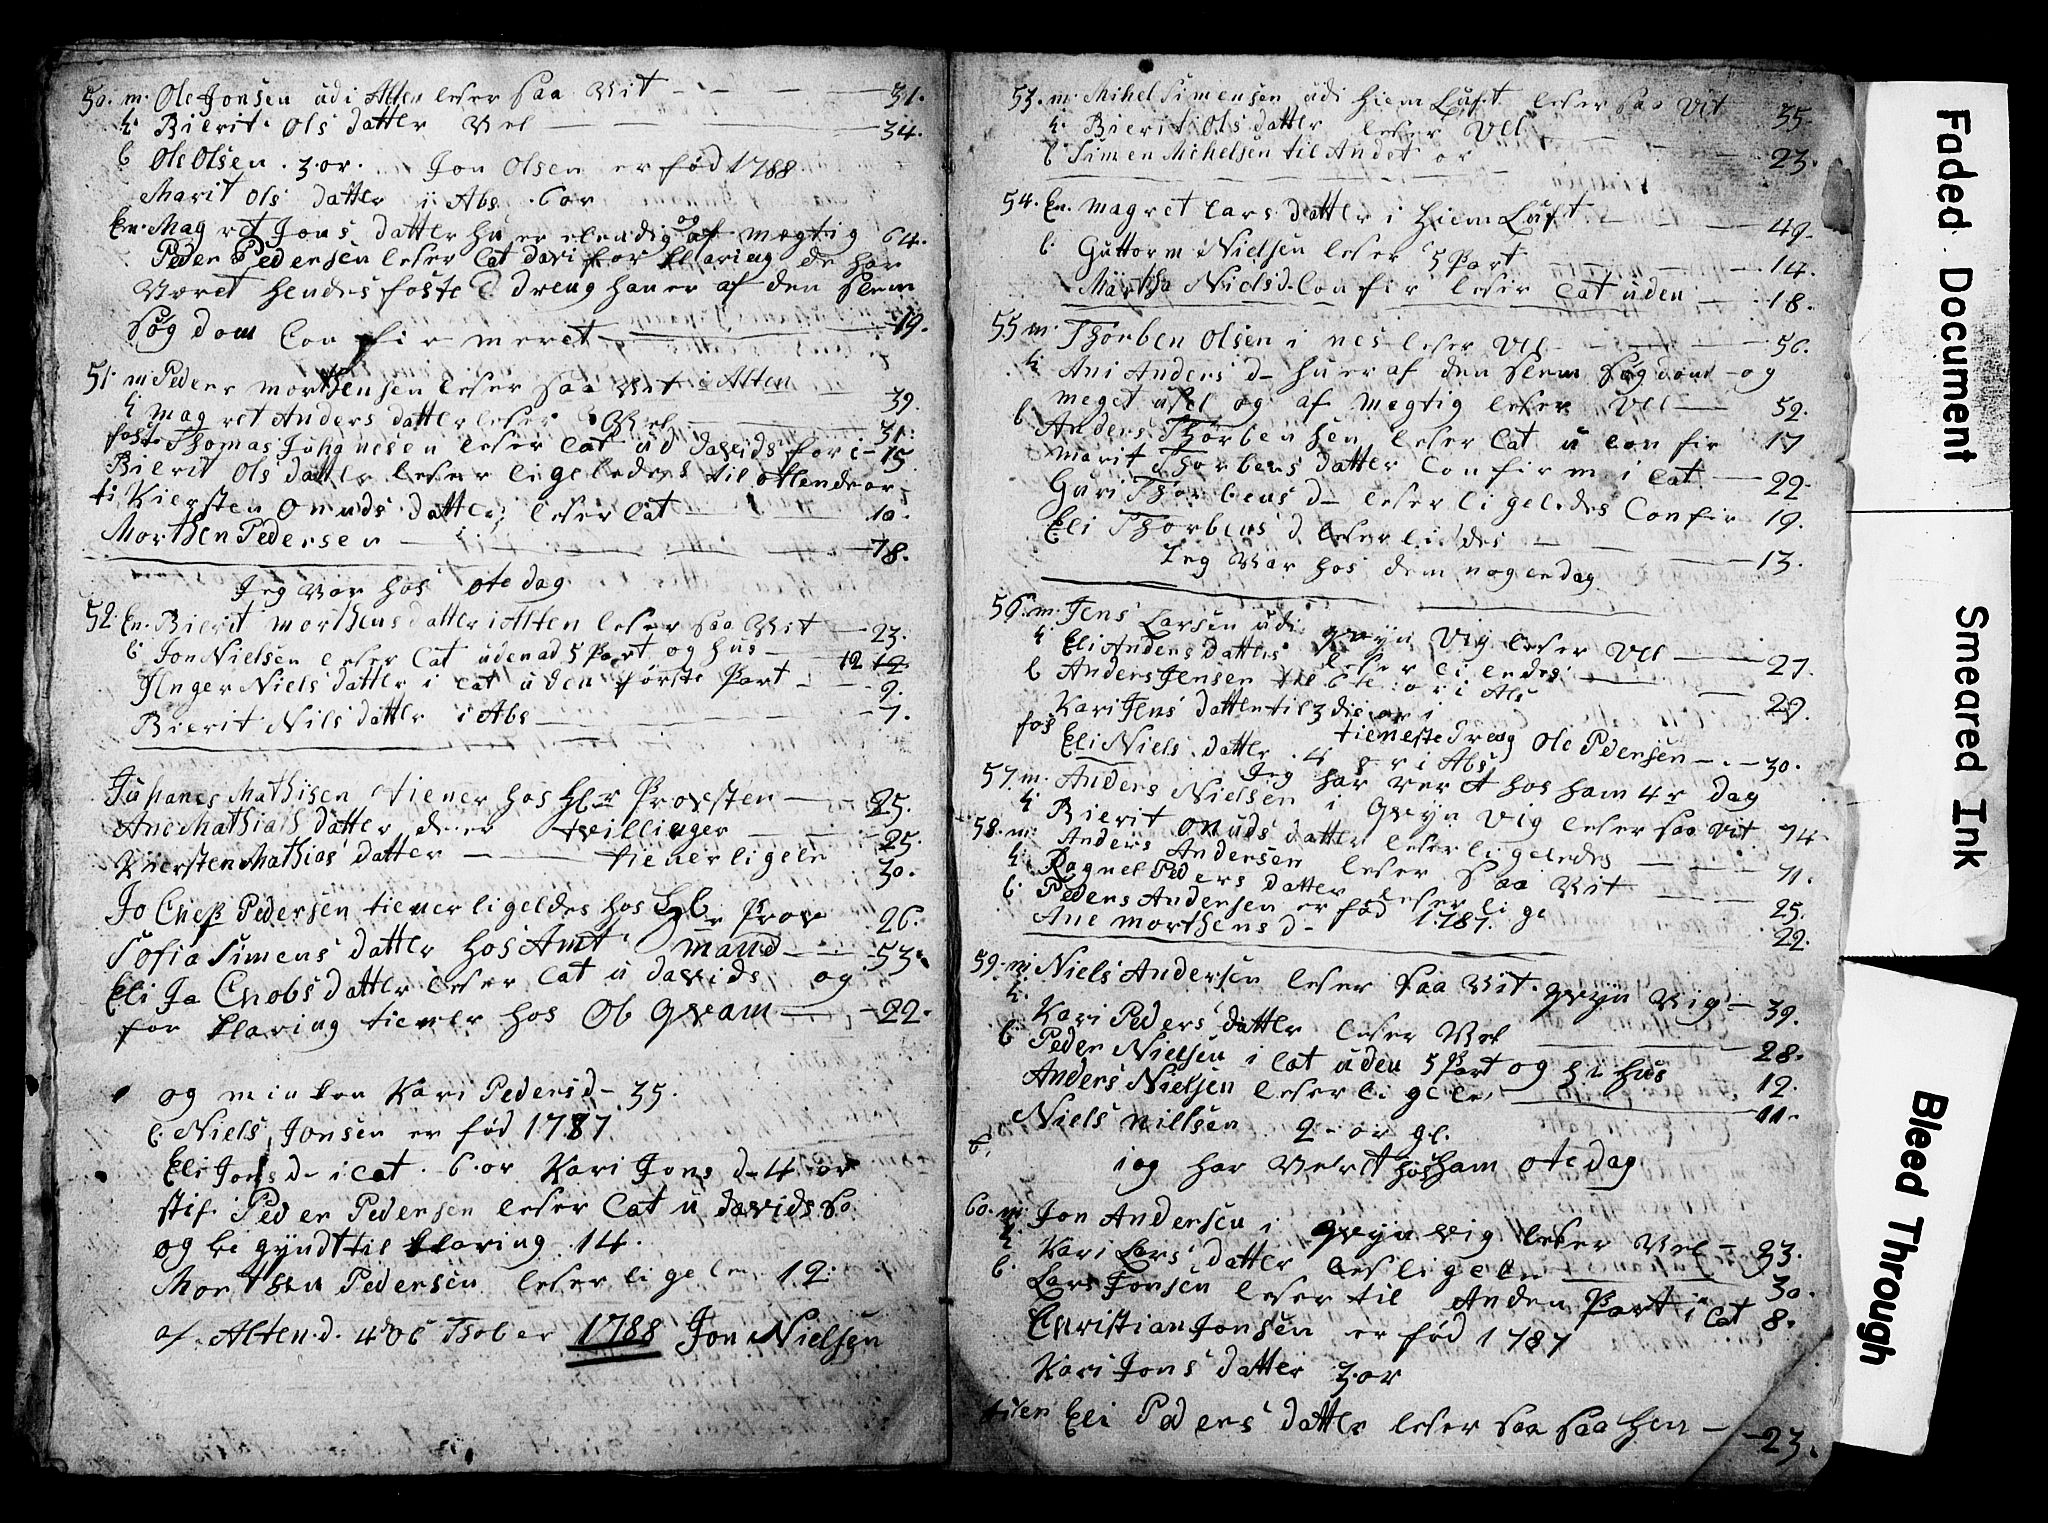 50. m. Ole Jonsen udi Alten leser saa Vit 31.
k. Bierit Ols datter Vel 34.
b Ole Olsen . 3. or. Jon Olsen er fød 1788
Marit Ols datter i Abs . 6 or
En. Magret Jons datter hu er elendig og af mægtig 64.
Peder Pedersen leser Cat davi for klaring de har
Været hendes foste dreng han er af den slem
søgdom Confirmeret 19.
51. m Peder morthensen leser saa Vit i Alten 39.
k magret Anders datter leser Vel 31.
foste Thomas Juhannesen leser Cat ud davids for i 15
Bierit Ols datter leser ligeledes til ottende or
ti Kiersten Onuds datter leser Cat 10.
Morthen Pedersen 78.
Jeg Var hos ote dag
52. En. Bierit morthens datter i Alten leser saa Vit 23.
b Jon Nielsen leser Cat uden ad 5 Part og hus 12 12
Inger Niels datter i Cat uden første Part 9.
Bierit Nils datter i Abs 7.
Juhanes Mathisen tiener hos Hr Provsten 25.
Ane Mathias datter de er tvillinger 25.
Kiersten Mathias datter tiener ligele 30.
Jo Chep Pedersen tiener ligeldes hos Hr Prov 26.
Sofia Simens datter hos Amt mand 53.
Eli Ja Cnobs datter leser Cat u davids og
for klaring tiener hos Ob Qvam 22.
og min kon Kari Peders d 35.
b. Niels Jonsen er fød 1787
Eli Jons d i Cat . 6. or Kari Jons d 4 or
stif. Peder Pedersen leser Cat u davids so
og begyndt til klaring . 14.
Morthen Pedersen leser ligele 12.
af Alten d. 4 Octsober 1788 Jon Nielsen
53. m. Mihel Simensen udi Hiem Luft leser saa Vit 35.
k. Bierit Ols datter leser Vel
b Simen Mihelsen til Andet or 23.
54. En. Magret Lars datter i Hiem Luft 49.
b. Guttorm Nielsen leser 5 Part 14.
Martha Niels d. Confir leser Cat uden 18.
55 m. Thorben Olsen i nes leser Vel 56.
k Ani Anders d hu er af den slem søgdom og
meget usel og af megtig leser Vel 52.
b Anders Thorbensen leser Cat u Confir 17
Marit Thorbens datter Confirm i Cat 22.
Guri Thorbens d leser ligeledes Confir 19.
Eli Thorbens d leser li des 13.
Jeg Var hos dem nogen dag
56. m. Jens Larsen udi Qvyn Vig leser Vel
k Eli Anders datter leser li ledes 27.
b Anders Jensen til 6te or i Abs
Kari Jens datter til 3 die or i 29.
fos Eli Niels datter . 4 or i Abs tieneste Dreng Ole Pedersen 30.
Jeg har Veret hos ham 4r dag
57. m. Anders Nielsen i Qvyn Vig leser saa Vit 74
k Bierit Onuds datter leser ligeledes 71.
58. m. Anders Andersen leser saa Vit
k Ragnel Peders datter leser lige 25.
b. Peders Andersen er fød 1787.
Ane morthens d 22.
59. m Niels Andersen leser saa Vit. Qvyn Vig 39.
k. Kari Peders datter leser Vel 28.
b Peder Nielsen i Cat uden 5 Part og hi hus 12.
Anders Nielsen leser ligele 11.
b. Niels Nilsen 2 or gl.
iog har Verit hos ham ote dag
60. m. Jon Andersen i Qvyn Vig leser Vel 33.
k Kari Lars datter les ligele 30.
b. Lars Jonsen leser til Anden Part i Cat 8.
Christian Jonsen er fød 1787
Kari Jons datter 3. or
tiien Eli Peders datter leser saa saa hen 23.
Faded Document
Smeared Ink
Bleed Through